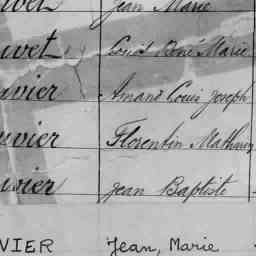 Jean Marie
uvet Louis René Marie
uvier Amand Louis Joseph
uvier Florentin Mathurin
uvier Jean Baptiste
VIER Jean, Marie